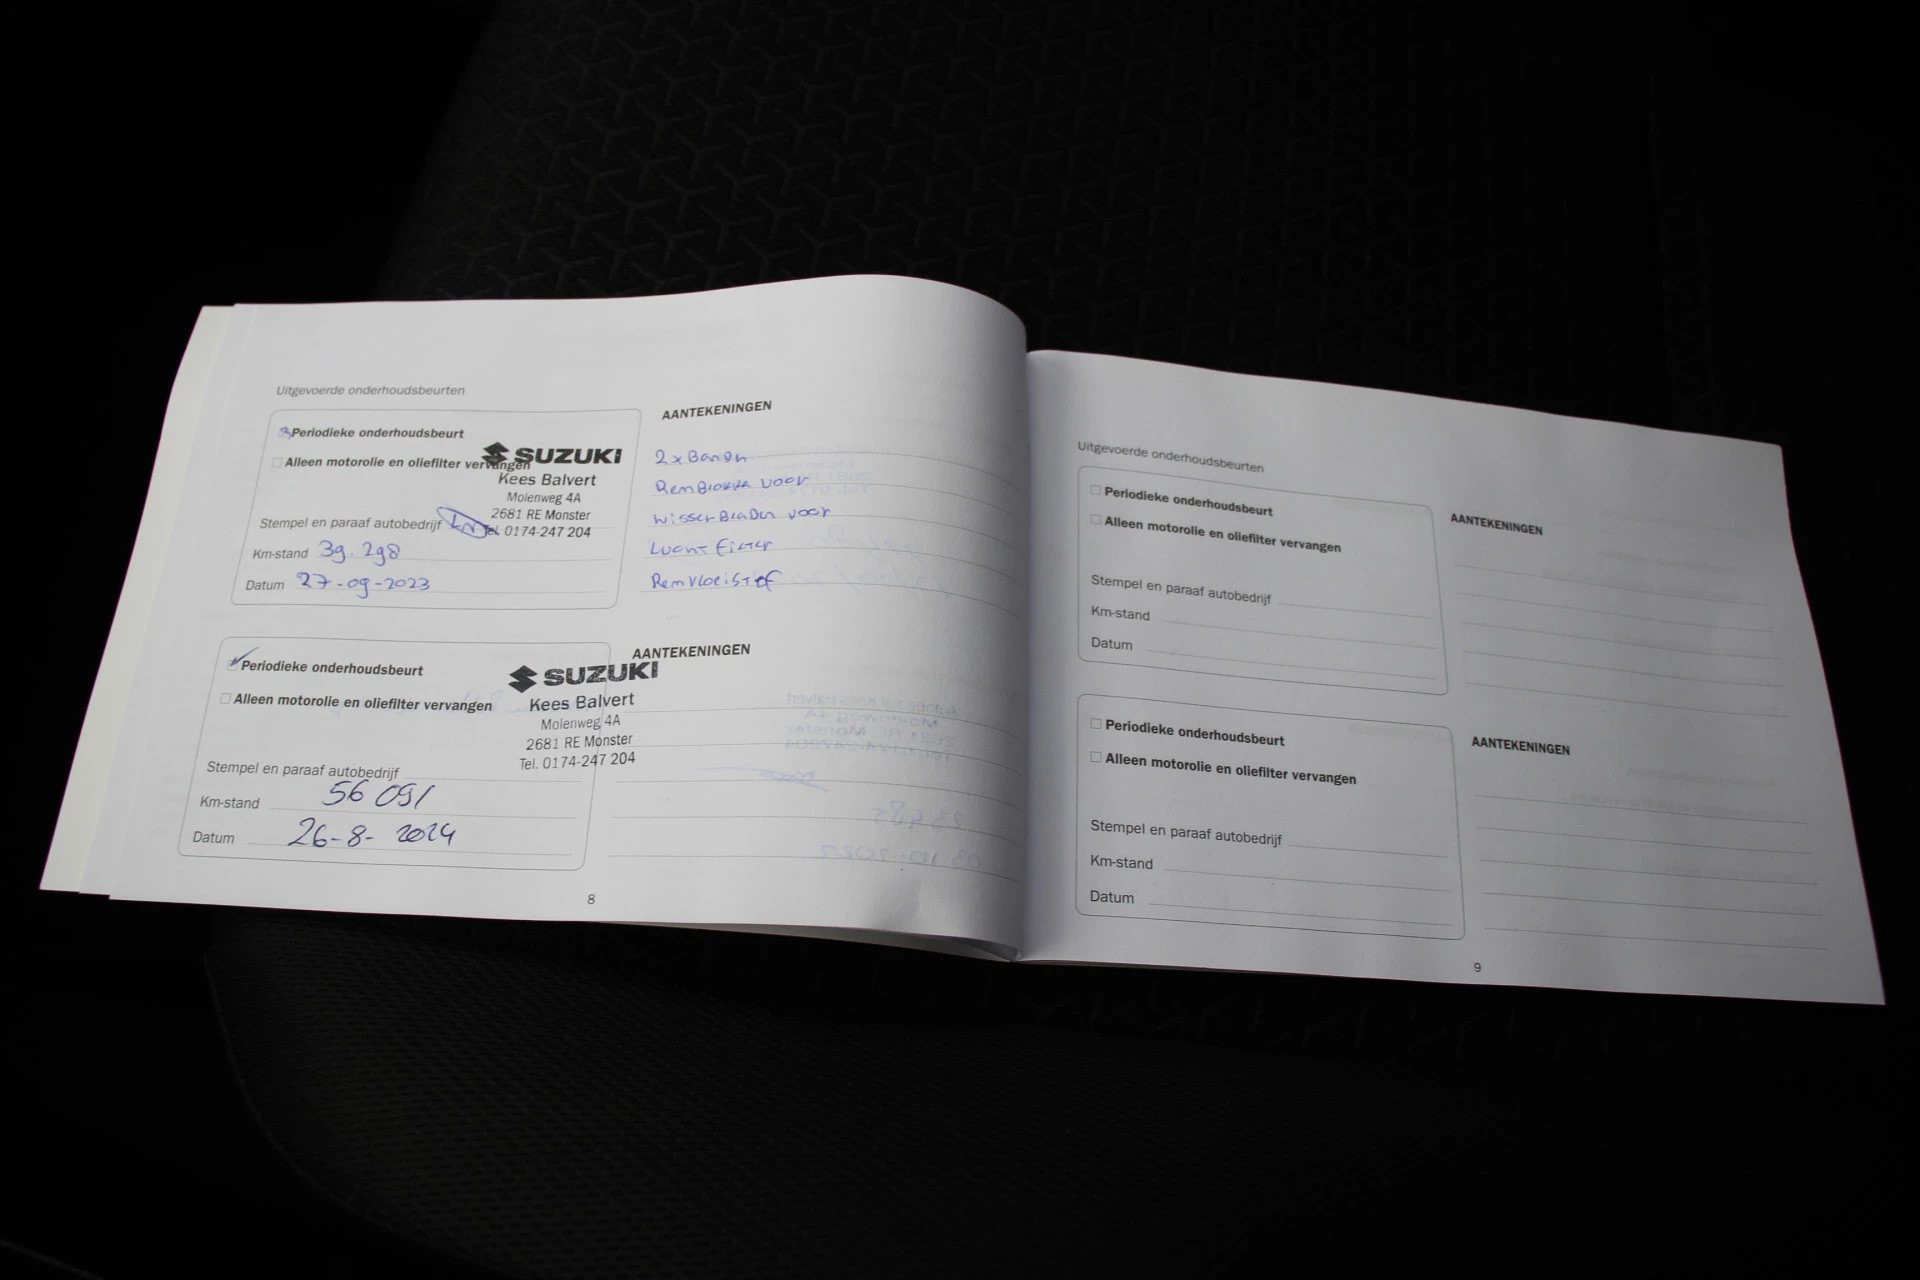 Uitgevoerde onderhoudsbeurten
Periodieke onderhoudsbeurt
Alleen motorolie en oliefilter vervangen
SUZUKI
Kees Balvert
Molenweg 4A
2681 RE Monster
Tel. 0174-247 204
Stempel en paraaf autobedrijf
Km-stand 39.298
Datum 27-09-2023
AANTEKENINGEN
2x Banden
Remblokken voor
wisserbladen voor
Lucht filter
Remvloeistof
Periodieke onderhoudsbeurt
Alleen motorolie en oliefilter vervangen
SUZUKI
Kees Balvert
Molenweg 4A
2681 RE Monster
Tel. 0174-247 204
Stempel en paraaf autobedrijf
Km-stand 56 091
Datum 26-8-2024
AANTEKENINGEN
8
Uitgevoerde onderhoudsbeurten
Periodieke onderhoudsbeurt
Alleen motorolie en oliefilter vervangen
Stempel en paraaf autobedrijf
Km-stand
Datum
AANTEKENINGEN
Periodieke onderhoudsbeurt
Alleen motorolie en oliefilter vervangen
Stempel en paraaf autobedrijf
Km-stand
Datum
AANTEKENINGEN
9